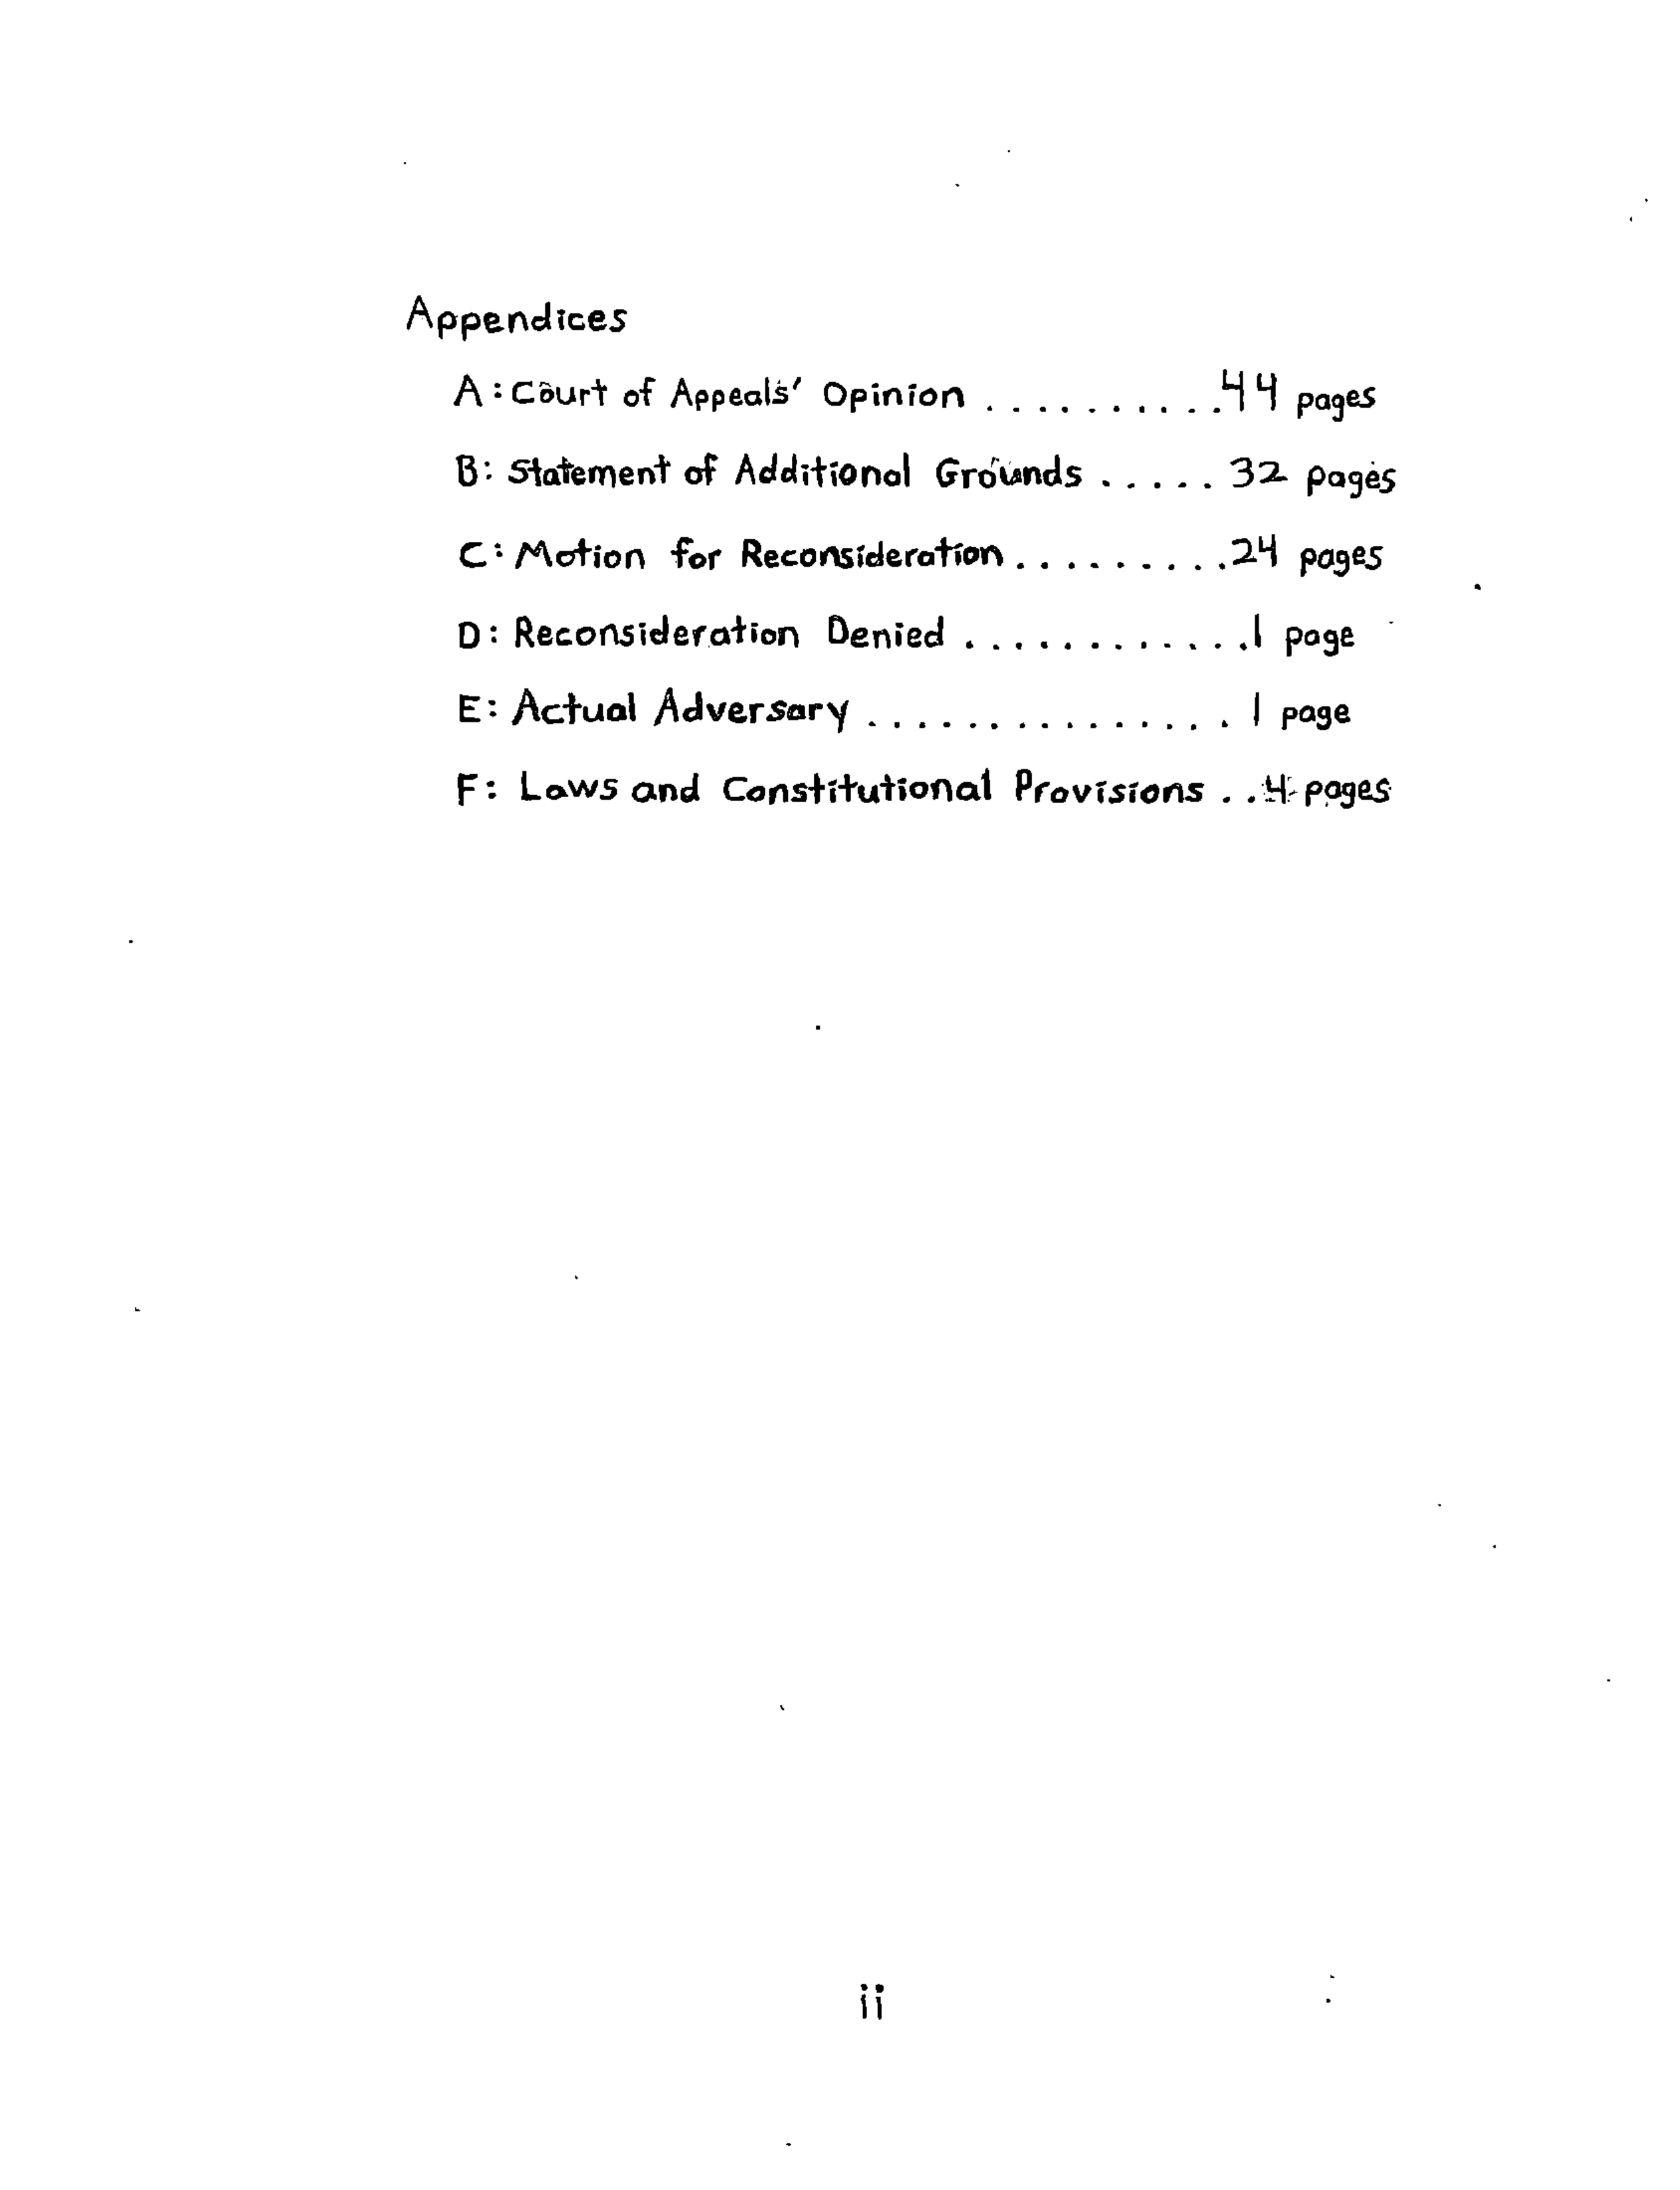 Appendices
A: Court of Appeals' Opinion . . . . . . . . . . 44 pages
B: Statement of Additional Grounds . . . . . 32 pages
C: Motion for Reconsideration . . . . . . . . . 24 pages
D: Reconsideration Denied . . . . . . . . . . . . 1 page
E: Actual Adversary . . . . . . . . . . . . . . . 1 page
F: Laws and Constitutional Provisions . . 4 pages
ii